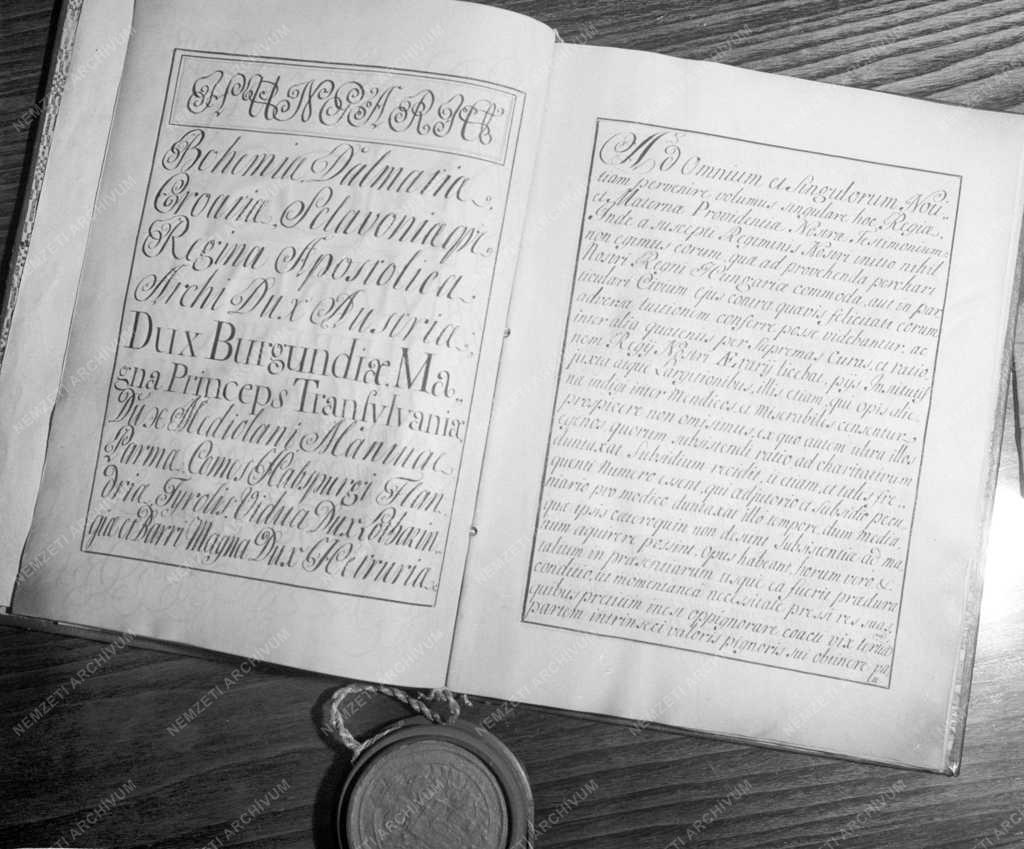 HUNGARIÆ
Bohemiæ Dalmatiæ,
Croatiæ, Sclavoniæqꝫ
Regina Apostolica,
Archi Dux Austriæ;
Dux Burgundiæ, Ma„
gna Princeps Transylvaniæ
Dux Mediolani Mantuæ
Parmæ, Comes Habspurgi Flan„
driæ, Tyrolis, Vidua Dux Lotharin„
giæ et Barri Magna Dux Hetruriæ
Ad Omnium et Singulorum Noti„
tiam pervenire volumus singulare hoc Regiæ,
et Maternæ Providentiæ Nostræ Testimonium:
Inde a suscepti Regiminis Nostri initio nihil
non egimus eorum, quæ ad provehenda perchari
Nostri Regni Hungariæ commoda, aut in par
ticulari Civium ejus contra quævis felicitati eorum
adversa tuitionem conferre posse videbantur, ac
inter alia quatenus per supremas Curas, et ratio
nem Regij Nostri Ærarij licebat, pijs Institutis
juxta æque Largitionibus, illis etiam, qui opis alie
næ indigi inter Mendicos, et miserabiles censentur,
prospicere non omisimus, ex quo autem ultra illos
egenos quorum subsistendi ratio ad charitativum
duntaxat Subsidium recidit, u etiam, et tales fre„
quenti Numero essent, qui adjutorio et Subsidio pecu
niario pro modico duntaxat illo tempore, dum media,
quæ ipsis cæteroquin non desunt Subsistentiæ ad ma
num aquirere possint, opus habeant, horum vero &
talium in præsentiarum usque ea fuerit prædura
conditio, ut momentanea necessitate pressi res suas,
quibus pretium inest oppignorare coacti vix tertiam
partem intrinseci valoris pignoris sui obtinere, pa„
NEMZETI ARCHÍVUM